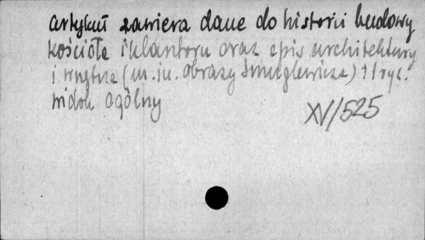 artykuł zawiera dane do historii budowy
kościoła i klasztoru oraz opis architektury
i wnętrza (m.in. obrazy Smuglewicza) + 1 ryc.
widok ogólny
XV/525